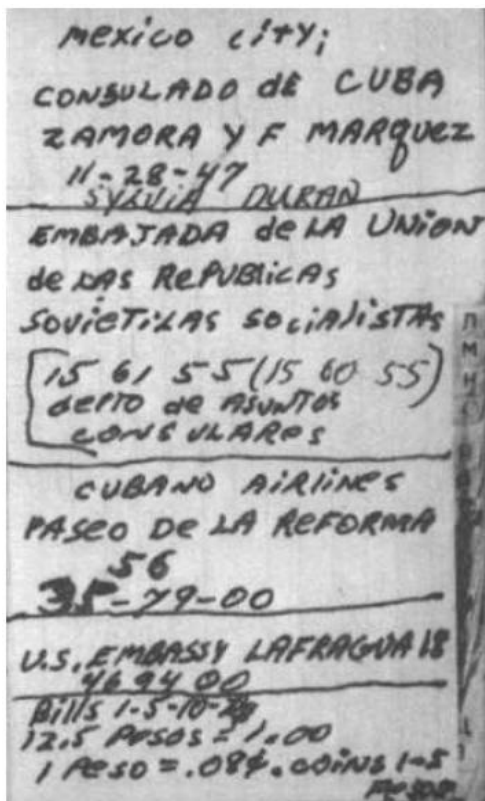 MEXICO CITY;
CONSULADO DE CUBA
ZAMORA Y F MARQUEZ
11-28-47
SYLVIA DURAN
EMBAJADA de LA UNION
de LAS REPUBLICAS
SOVIETICAS SOCIALISTAS
15 61 55 (15 60 55)
DEPTO de ASUNTOS
CONSULARES
CUBANO AIRLINES
PASEO DE LA REFORMA
56
35-79-00
U.S. EMBASSY LAFRAGUA 18
46 94 00
Bills 1-5-10-20
12.5 PESOS = 1.00
1 PESO = .08¢. COINS 1-5
PESOS